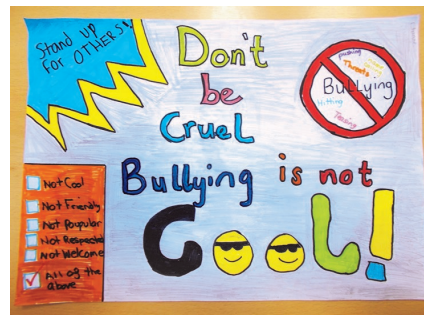 Stand UP
FOR OTHERS!
Don't
be
Cruel
Bullying is not
COOL!
pushing
Threats
Bullying
Hitting
Teasing
Not Cool
Not Friendly
Not Poupular
Not Respected
Not Welcome
All of the
above